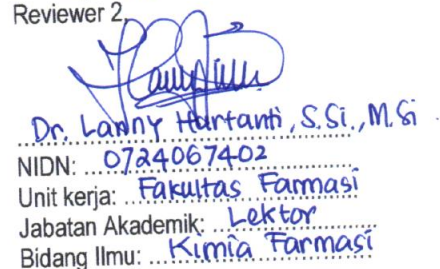 Reviewer 2,
Dr. Lanny Hartanti, S.Si., M.Si
NIDN: 0724067402
Unit kerja: Fakultas Farmasi
Jabatan Akademik: Lektor
Bidang Ilmu: Kimia Farmasi